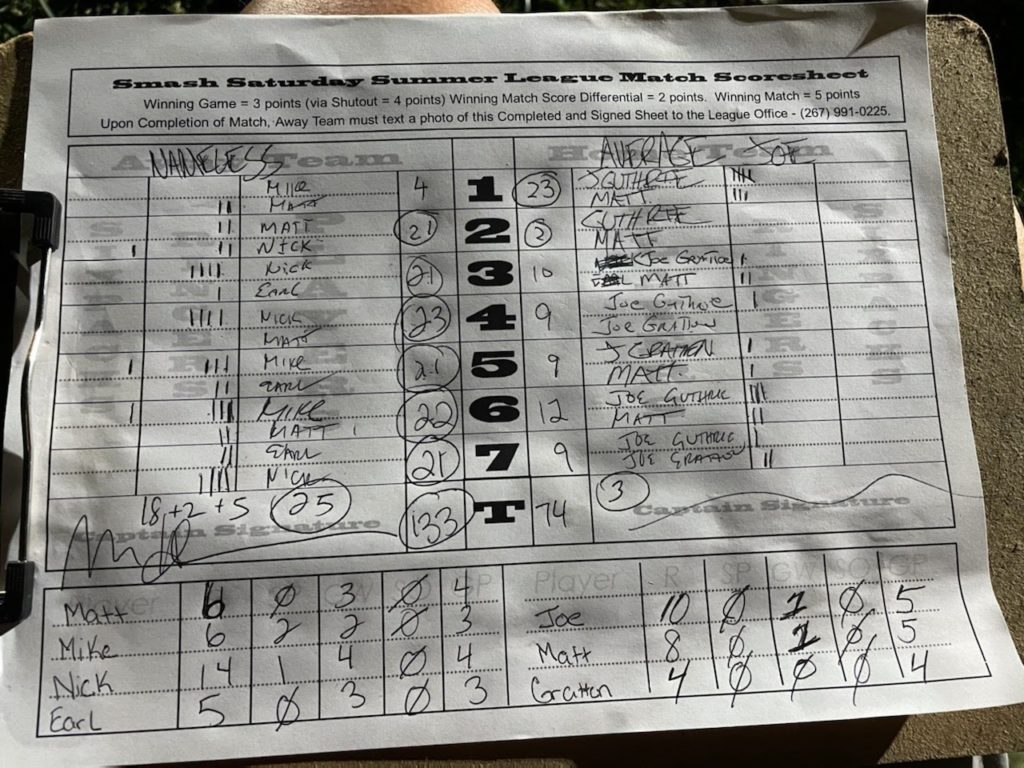 Smash Saturday Summer League Match Scoresheet
Winning Game = 3 points (via Shutout = 4 points) Winning Match Score Differential = 2 points. Winning Match = 5 points
Upon Completion of Match, Away Team must text a photo of this Completed and Signed Sheet to the League Office - (267) 991-0225.
NAMELESS Team AVERAGE JOE Home Team
MIKE 4 1 23 J GUTHRIE
MATT MATT
MATT 21 2 GUTHRIE
NICK MATT
NICK 21 3 10 JOE GRATTON
EARL MATT
NICK 23 4 9 Joe Guthrie
MATT JOE GRATTON
MIKE 21 5 9 J GRATTEN
EARL MATT
MIKE 22 6 12 JOE GUTHRIE
MATT MATT
EARL 21 7 9 JOE GUTHRIE
NICK JOE GRATTON
18 +2 +5 25 133 T 74 3
Captain Signature Captain Signature
Player GP Player R SP GW SO GP
Matt 6 Ø 3 Ø 4 Joe 10 Ø 1 Ø 5
Mike 6 2 2 Ø 3 Matt 8 Ø 1 Ø 5
Nick 14 1 4 Ø 4 Gratton 4 Ø Ø Ø 4
Earl 5 Ø 3 Ø 3